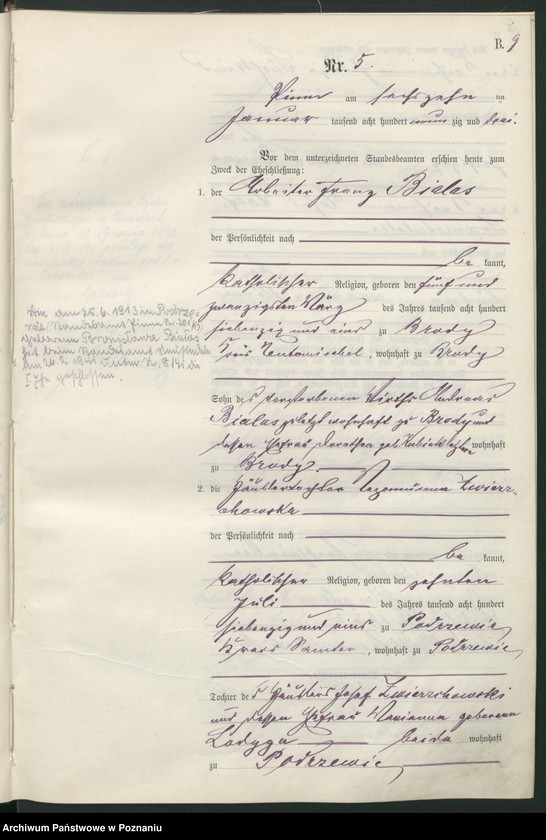 B. 9
Nr. 5.
Pinne am sechszehnten
Januar tausend acht hundert neunzig und drei.
Vor dem unterzeichneten Standesbeamten erschien heute zum
Zweck der Eheschließung:
1. der Arbeiter Franz Bialas
der Persönlichkeit nach
be kannt,
katholischer Religion, geboren den fünf und
zwanzigsten März des Jahres tausend acht hundert
siebenzig und eins zu Brody
Kreis Neutomischel, wohnhaft zu Brody
Sohn des verstorbenen Wirths Andreas
Bialas zuletzt wohnhaft zu Brody und
dessen Ehefrau Dorothea geb. wohnhaft
zu Brody.
2. die Häuslertochter Nepomucena Zwierz-
chowska
der Persönlichkeit nach
be kannt,
katholischer Religion, geboren den zehnten
Juli des Jahres tausend acht hundert
siebenzig und eins zu Podrzewie,
Kreis Samter, wohnhaft zu Podrzewie,
Tochter des Häuslers Josef Zwierzchowski
und dessen Ehefrau Marianna geborenen
Ladyga beide wohnhaft
zu Podrzewie,
Die am 25.6.1913 in Podrze-
wie Standesamt Pinne
geborene Bronislawa Bialas
hat beim Standesamt
am 26. 1941 unter Nr. die
Ehe geschlossen.
Archiwum Państwowe w Poznaniu
Archiwum Państwowe w Poznaniu